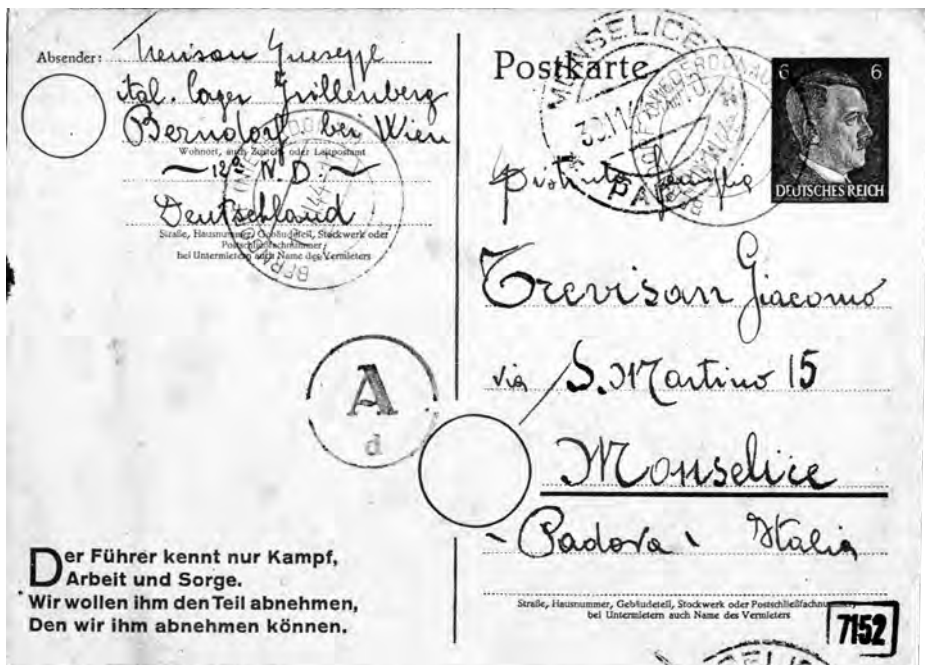 Absender: Trevisan Giuseppe
ital. lager Grillenberg
Berndorf bei Wien
Wohnort, auch Zustell- oder Leitpostamt
12a N. D.
Deutschland
Straße, Hausnummer, Gebäudeteil, Stockwerk oder
Postschließfachnummer;
bei Untermietern auch Name des Vermieters
A
d
Der Führer kennt nur Kampf,
Arbeit und Sorge.
Wir wollen ihm den Teil abnehmen,
Den wir ihm abnehmen können.
Postkarte
MONSELICE
30.11.
PA
NIEDERDONAU
6 6
DEUTSCHES REICH
Distinta famiglia
Trevisan Giacomo
via S. Martino 15
Monselice
- Padova - Italia
Straße, Hausnummer, Gebäudeteil, Stockwerk oder Postschließfachnummer;
bei Untermietern auch Name des Vermieters
7152